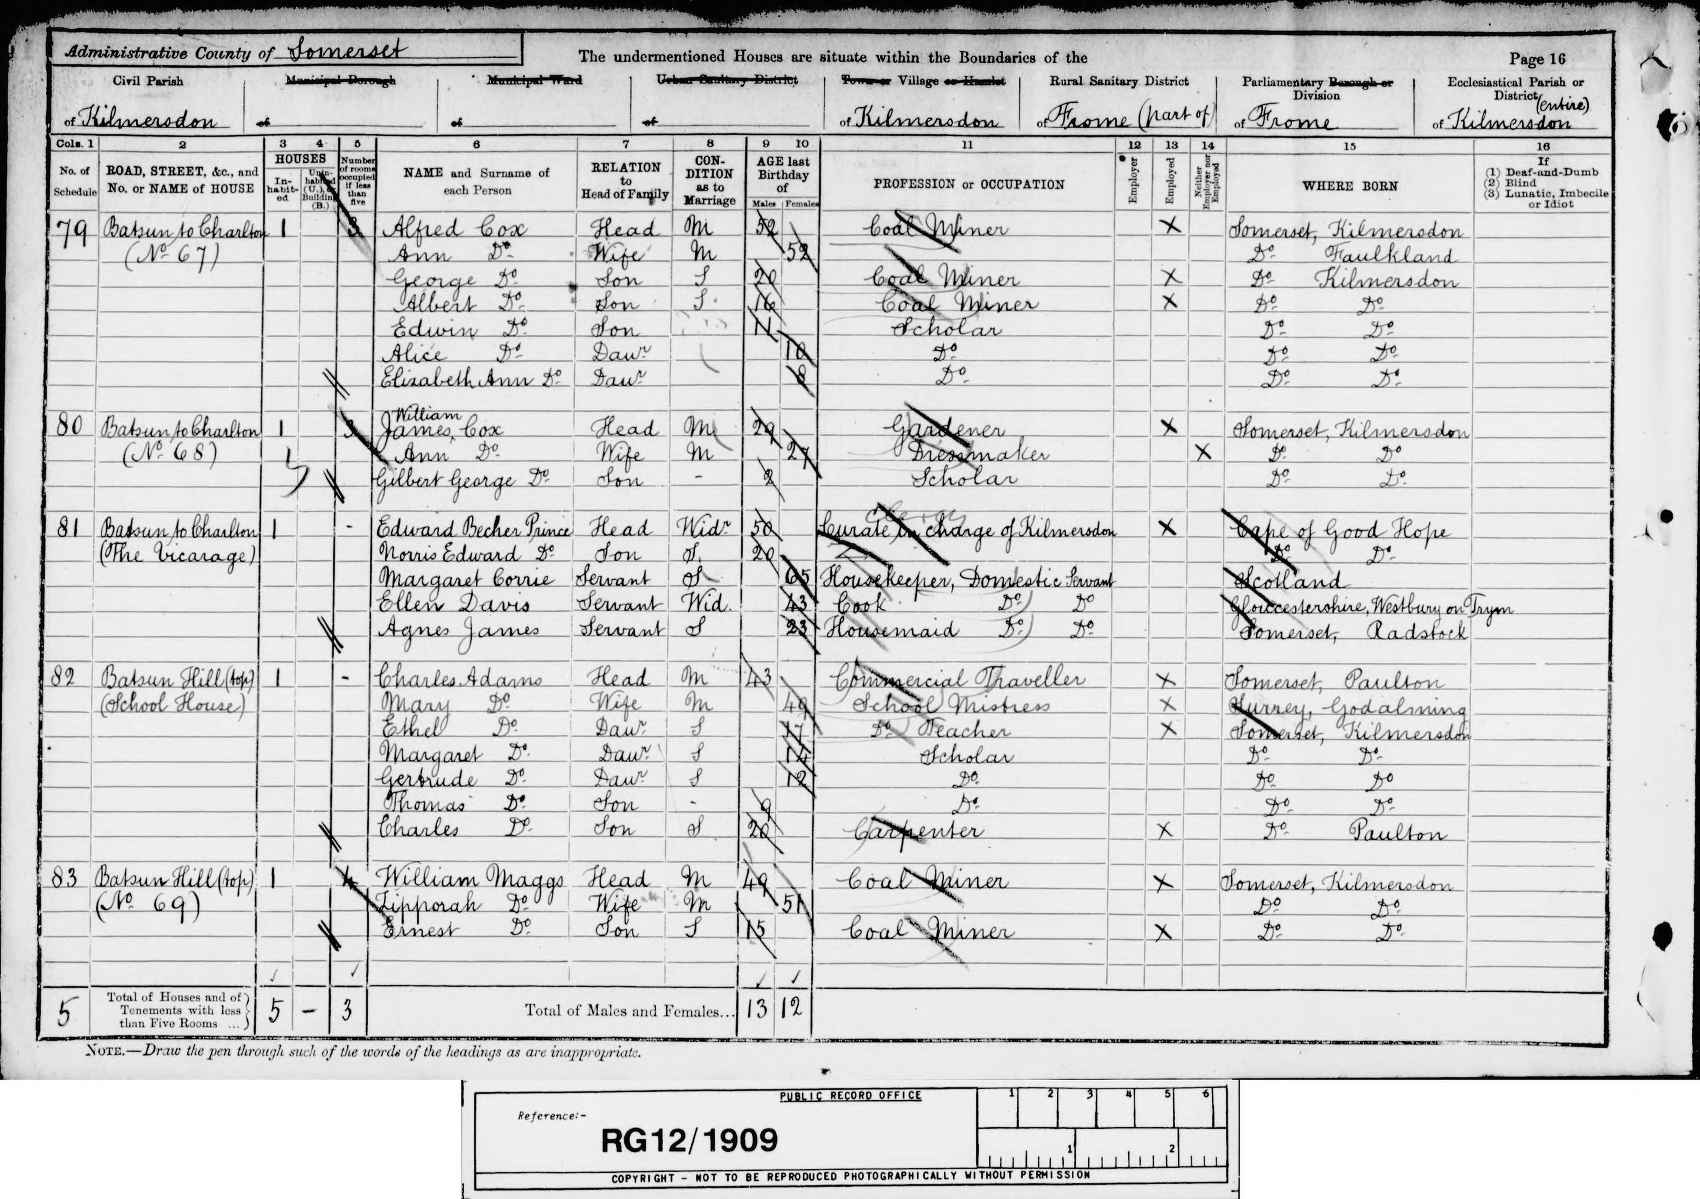 Administrative County of Somerset
The undermentioned Houses are situate within the Boundaries of the
Page 16
Civil Parish of Kilmersdon
Municipal Borough of
Municipal Ward of
Urban Sanitary District of
Town or Village or Hamlet of Kilmersdon
Rural Sanitary District of Frome (part of)
Parliamentary Borough or Division of Frome
Ecclesiastical Parish or District of Kilmersdon (entire)
Cols. 1 2 3 4 5 6 7 8 9 10 11 12 13 14 15 16
No. of Schedule
ROAD, STREET, &c., and No. or NAME of HOUSE
HOUSES
In-habit-ed
Unin-habited (U.), or Building (B.)
Number of rooms occupied if less than five
NAME and Surname of each Person
RELATION to Head of Family
CON-DITION as to Marriage
AGE last Birthday of
Males Females
PROFESSION or OCCUPATION
Employer
Employed
Neither Employer nor Employed
WHERE BORN
If (1) Deaf-and-Dumb (2) Blind (3) Lunatic, Imbecile or Idiot
79 Batsun to Charlton 1 3 Alfred Cox Head M 52 Coal Miner X Somerset, Kilmersdon
(No 67) Ann Do Wife M 52 Do Faulkland
George Do Son S 20 Coal Miner X Do Kilmersdon
Albert Do Son S 16 Coal Miner X Do Do
Edwin Do Son 11 Scholar Do Do
Alice Do Daur 10 Do Do Do
Elizabeth Ann Do Daur 8 Do Do Do
80 Batsun to Charlton 1 3 James William Cox Head M 29 Gardener X Somerset, Kilmersdon
(No 68) Ann Do Wife M 27 Dressmaker X Do Do
Gilbert George Do Son - 2 Scholar Do Do
81 Batsun to Charlton 1 - Edward Becher Prince Head Widr 50 Curate in charge of Kilmersdon X Cape of Good Hope
(The Vicarage) Norris Edward Do Son S 20 Do Do
Margaret Corrie Servant S 65 Housekeeper, Domestic Servant Scotland
Ellen Davis Servant Wid. 43 Cook Do Do Gloucestershire, Westbury on Trym
Agnes James Servant S 23 Housemaid Do Do Somerset, Radstock
82 Batsun Hill (top) 1 - Charles Adams Head M 43 Commercial Traveller X Somerset, Paulton
(School House) Mary Do Wife M 49 School Mistress X Surrey, Godalming
Ethel Do Daur S 17 Do Teacher X Somerset, Kilmersdon
Margaret Do Daur S 14 Scholar Do Do
Gertrude Do Daur S 12 Do Do Do
Thomas Do Son - 9 Do Do Do
Charles Do Son S 20 Carpenter X Do Paulton
83 Batsun Hill (top) 1 4 William Maggs Head M 49 Coal Miner X Somerset, Kilmersdon
(No 69) Zipporah Do Wife M 51 Do Do
Ernest Do Son S 15 Coal Miner X Do Do
5 Total of Houses and of Tenements with less than Five Rooms ... 5 - 3 Total of Males and Females... 13 12
NOTE.—Draw the pen through such of the words of the headings as are inappropriate.
PUBLIC RECORD OFFICE
1 2 3 4 5 6
Reference:-
RG12/1909
1 2
COPYRIGHT - NOT TO BE REPRODUCED PHOTOGRAPHICALLY WITHOUT PERMISSION